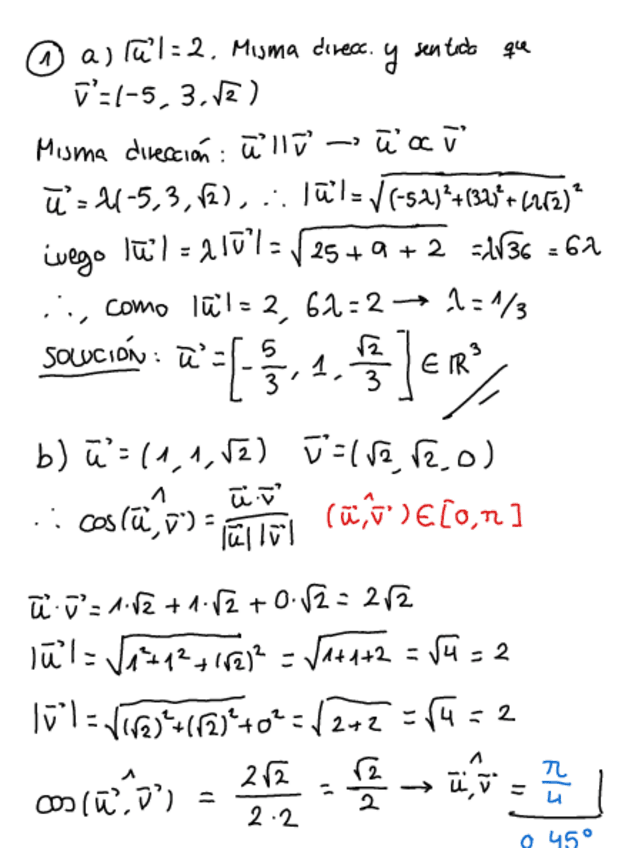 ① a) |u⃗| = 2. Misma direcc. y sentido que
v⃗ = (-5, 3, √2)
Misma dirección: u⃗ || v⃗ → u⃗ ∝ v⃗
u⃗ = λ(-5, 3, √2), ∴ |u⃗| = √((-5λ)² + (3λ)² + (λ√2)²)
luego |u⃗| = λ|v⃗| = √(25 + 9 + 2) = λ√36 = 6λ
∴, como |u⃗| = 2, 6λ = 2 → λ = 1/3
SOLUCIÓN: u⃗ = [-5/3, 1, √2/3] ∈ ℝ³ //
b) u⃗ = (1, 1, √2) v⃗ = (√2, √2, 0)
∴ cos(u⃗,^v⃗) = u⃗·v⃗ / |u⃗| |v⃗| (u⃗,^v⃗) ∈ [0, π]
u⃗·v⃗ = 1·√2 + 1·√2 + 0·√2 = 2√2
|u⃗| = √(1² + 1² + (√2)²) = √(1+1+2) = √4 = 2
|v⃗| = √((√2)² + (√2)² + 0²) = √(2+2) = √4 = 2
cos(u⃗,^v⃗) = 2√2 / 2·2 = √2/2 → u⃗,^v⃗ = π/4
o 45°